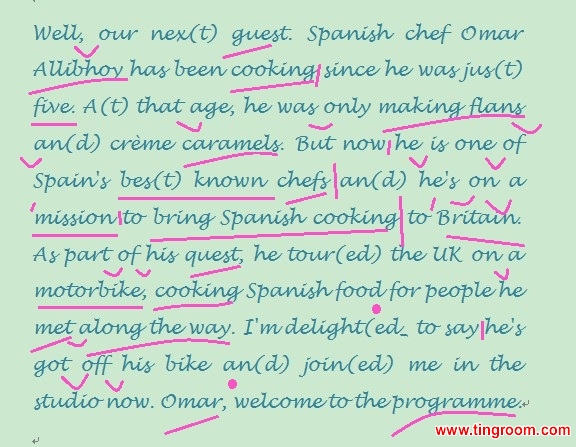 Well, our nex(t) guest. Spanish chef Omar
Allibhoy has been cooking since he was jus(t)
five. A(t) that age, he was only making flans
an(d) crème caramels. But now he is one of
Spain's bes(t) known chefs an(d) he's on a
mission to bring Spanish cooking to Britain.
As part of his quest, he tour(ed) the UK on a
motorbike, cooking Spanish food for people he
met along the way. I'm delight(ed_ to say he's
got off his bike an(d) join(ed) me in the
studio now. Omar, welcome to the programme.
www.tingroom.com